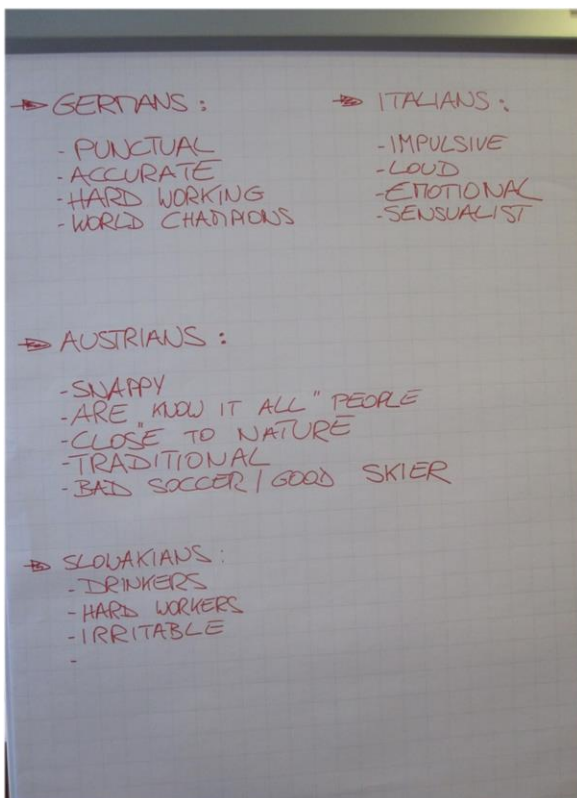 GERMANS:
- PUNCTUAL
- ACCURATE
- HARD WORKING
- WORLD CHAMPIONS
ITALIANS:
- IMPULSIVE
- LOUD
- EMOTIONAL
- SENSUALIST
AUSTRIANS:
- SNAPPY
- ARE "KNOW IT ALL" PEOPLE
- CLOSE TO NATURE
- TRADITIONAL
- BAD SOCCER / GOOD SKIER
SLOVAKIANS:
- DRINKERS
- HARD WORKERS
- IRRITABLE
-